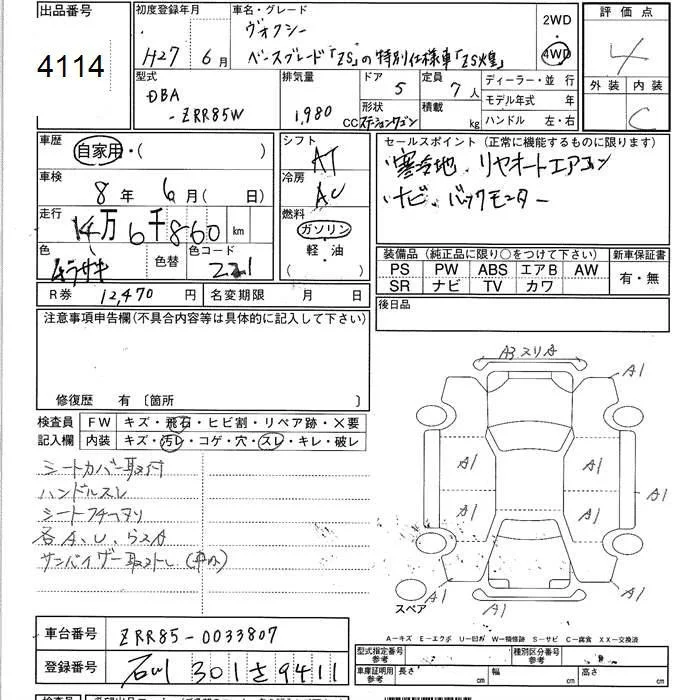 出品番号
4114
初度登録年月
H27 6月
車名・グレード
ヴォクシー
ベースグレード「ZS」の特別仕様車「ZS煌」
2WD
4WD
評価点
4
外装 内装
C
型式
DBA
-ZRR85W
排気量
1,980 CC
ドア 5
形状
ステーションワゴン
定員 7人
積載 kg
ディーラー・並行
モデル年式 年
ハンドル 左・右
車歴
自家用・( )
車検
8年 6月( 日)
走行
14万6千860 km
色
ムラサキ
色替
色コード
221
シフト
AT
冷房
AC
燃料
ガソリン
軽・油
( )
セールスポイント(正常に機能するものに限ります)
・寒冷地 リヤオートエアコン
・ナビ、バックモニター
装備品(純正品に限り○をつけて下さい)
PS PW ABS エアB AW
SR ナビ TV カワ
新車保証書
有・無
R券 12,470円
名変期限 月 日
後日品
注意事項申告欄(不具合内容等は具体的に記入して下さい)
修復歴 有〔箇所 〕
検査員
記入欄
FW キズ・飛石・ヒビ割・リペア跡・×要
内装 キズ・汚レ・コゲ・穴・スレ・キレ・破レ
シートカバー取付
ハンドルスレ
各A、U、ラスA
サンバイザー取外し(車内)
A3スリA
A1
A1
A1 A1 A1
A1 A1
A1
A1
スペア
A-キズ E-エクボ U-凹ガ W-補修跡 S-サビ C-腐食 XX-交換済
車台番号
ZRR85-0033807
登録番号
石川 301 さ 9411
型式指定番号
参考
種別区分番号
参考
車庫証明用
参考
長さ
幅
高さ